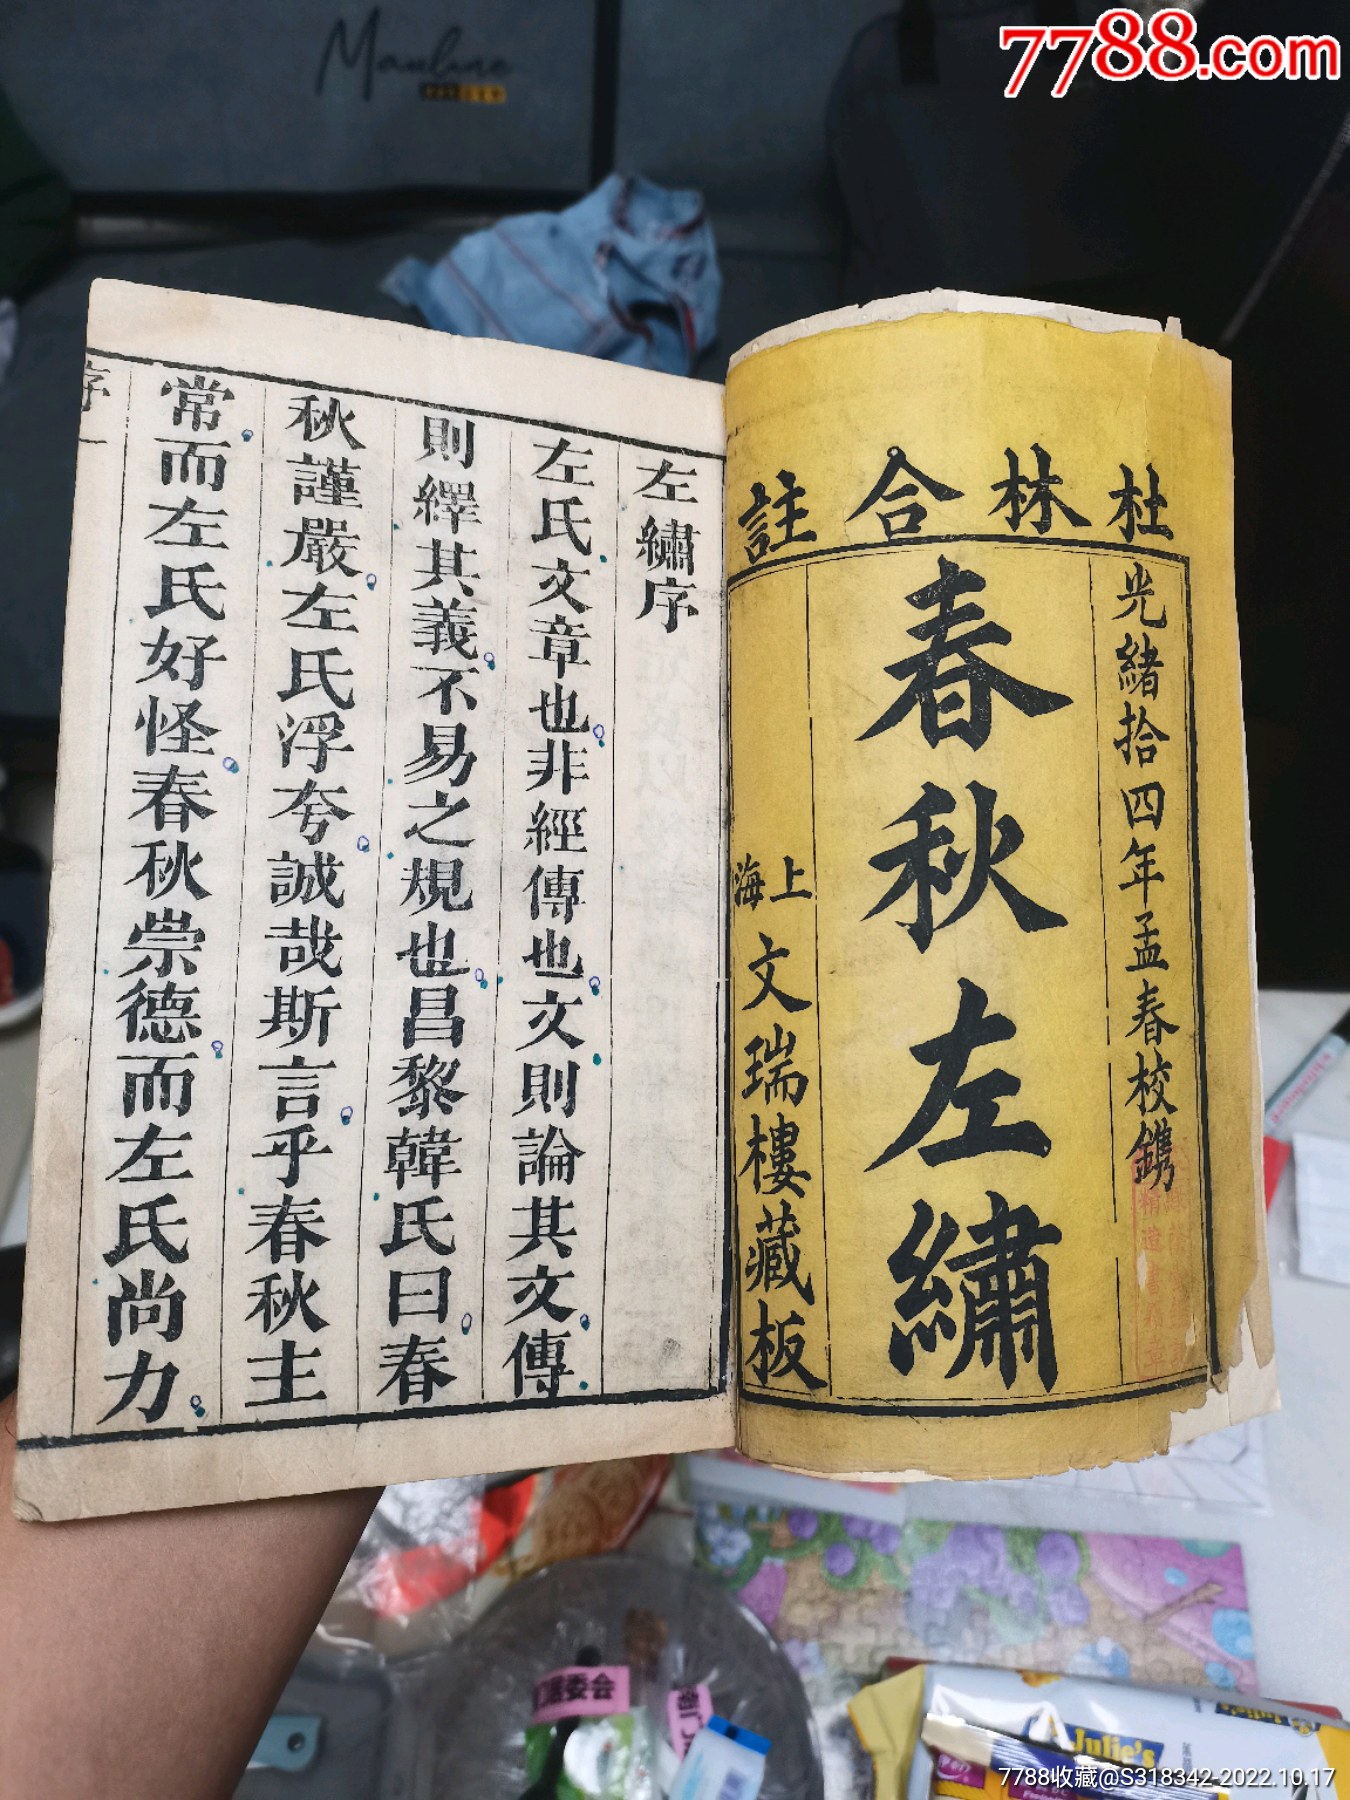 7788.com
杜林合註
光緒拾四年孟春校鐫
春秋左繡
上海
文瑞樓藏板
左繡序
左氏文章也非經傳也文則論其文傳
則繹其義不易之規也昌黎韓氏曰春
秋謹嚴左氏浮夸誠哉斯言乎春秋主
常而左氏好怪春秋崇德而左氏尚力
序
一
Julie's
7788收藏@S318342 2022.10.17